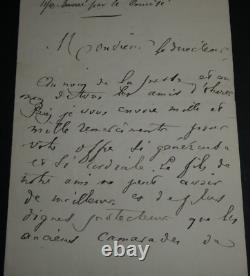 par le Comité
Monsieur le directeur
Au nom de la presse et au
nom d'actions les amis d'
je vous envoie mille et
mille remerciements pour
votre offre si généreuse
et si cordiale. Le fils de
notre ami ne peut avoir
de meilleurs et de plus
dignes protecteurs que les
anciens camarades de